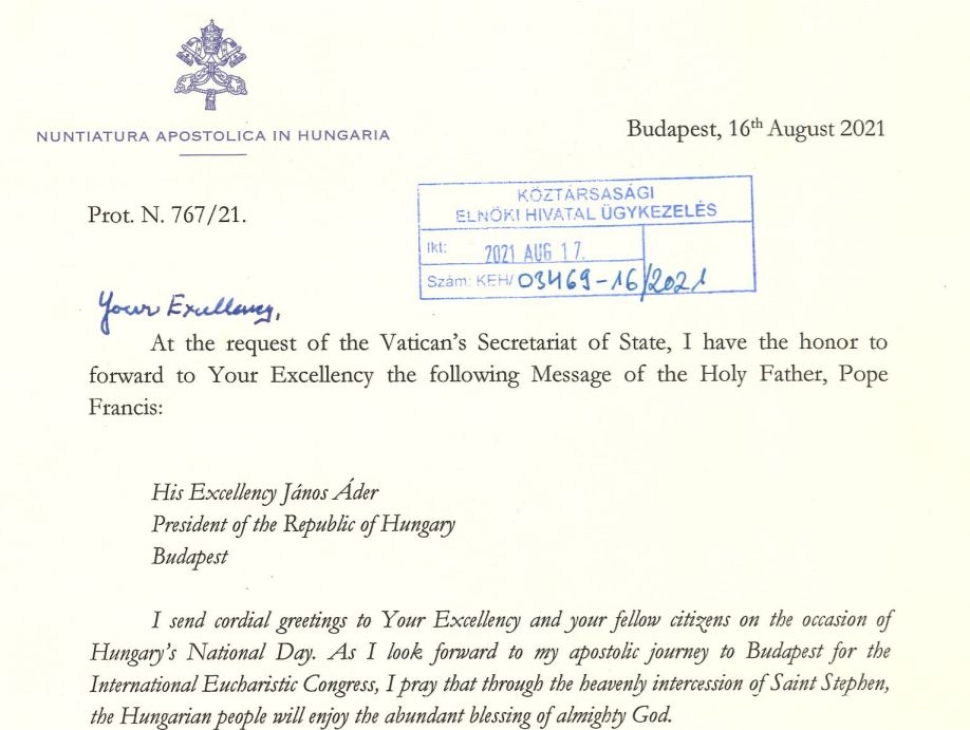 NUNTIATURA APOSTOLICA IN HUNGARIA
Budapest, 16th August 2021
Prot. N. 767/21.
KÖZTÁRSASÁGI
ELNÖKI HIVATAL ÜGYKEZELÉS
Ikt: 2021 AUG 17.
Szám: KEH/ 03469-16/2021
Your Excellency,
At the request of the Vatican's Secretariat of State, I have the honor to
forward to Your Excellency the following Message of the Holy Father, Pope
Francis:
His Excellency János Áder
President of the Republic of Hungary
Budapest
I send cordial greetings to Your Excellency and your fellow citizens on the occasion of
Hungary's National Day. As I look forward to my apostolic journey to Budapest for the
International Eucharistic Congress, I pray that through the heavenly intercession of Saint Stephen,
the Hungarian people will enjoy the abundant blessing of almighty God.